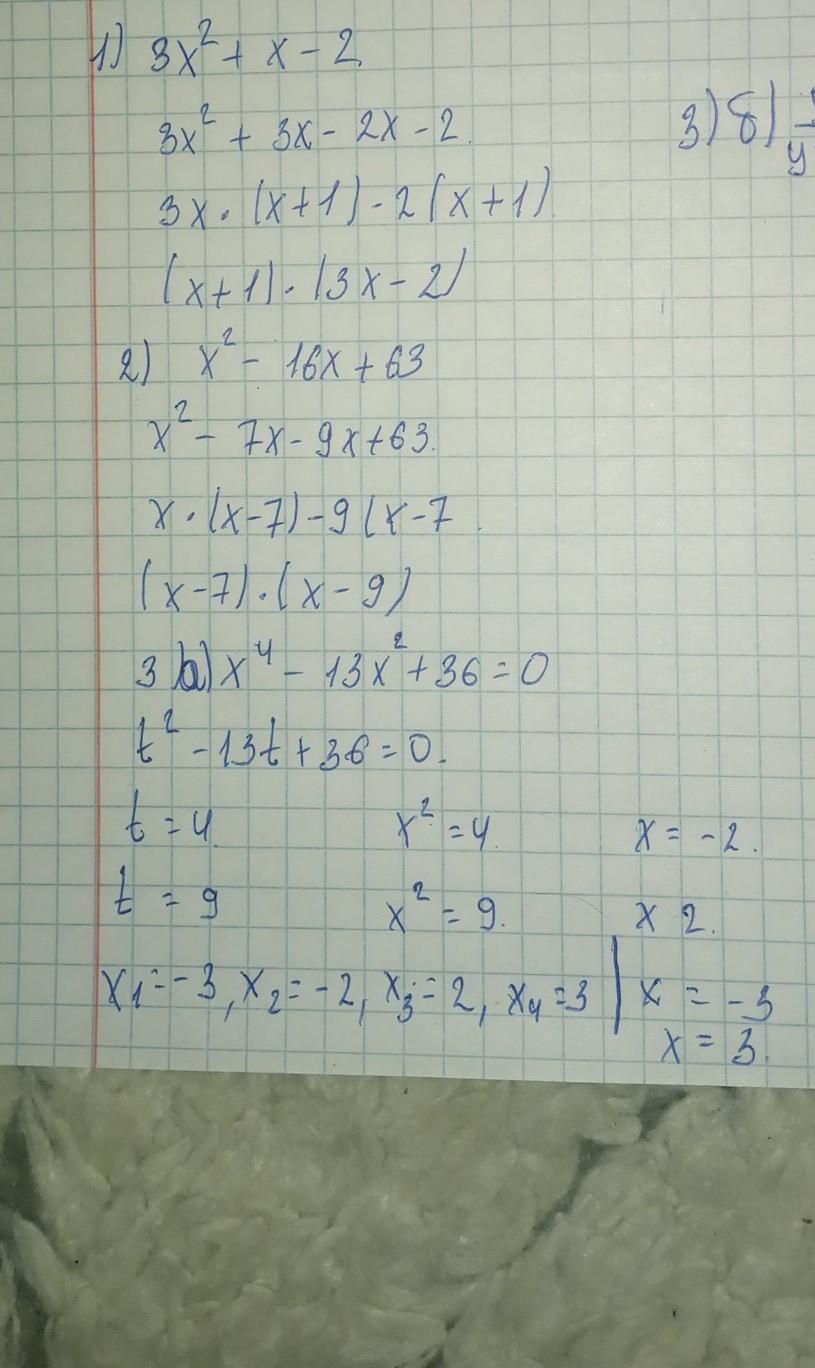 1) 3x² + x - 2
3x² + 3x - 2x - 2
3x · (x+1) - 2(x+1)
(x+1) · (3x - 2)
2) x² - 16x + 63
x² - 7x - 9x + 63.
x · (x-7) - 9(x-7
(x-7) · (x-9)
3 а) x⁴ - 13x² + 36 = 0
t² - 13t + 36 = 0.
t = 4 x² = 4 x = -2.
t = 9 x² = 9. x 2.
x₁ = -3, x₂ = -2, x₃ = 2, x₄ = 3 | x = -3
x = 3.
3) б)
y